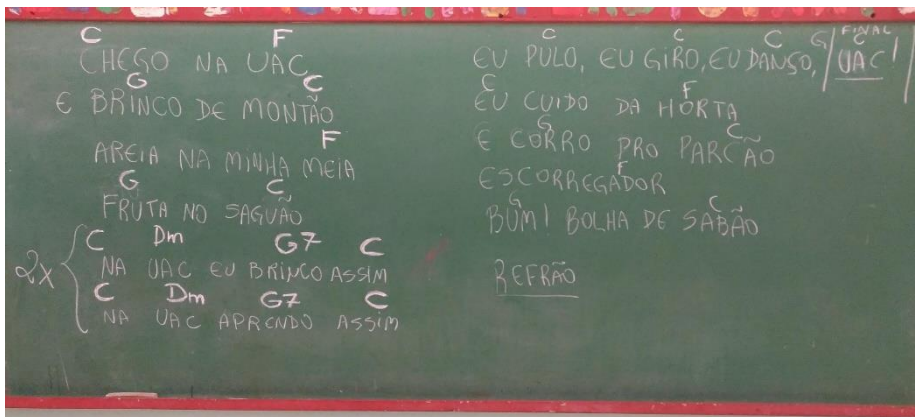 C F
CHEGO NA UAC
G C
E BRINCO DE MONTÃO
F
AREIA NA MINHA MEIA
G C
FRUTA NO SAGUÃO
C Dm G7 C
2X { NA UAC EU BRINCO ASSIM
C Dm G7 C
NA UAC APRENDO ASSIM
C C C G FINAL C
EU PULO, EU GIRO, EU DANSO, UAC!
C F
EU CUIDO DA HORTA
G C
E CORRO PRO PARCÃO
F
ESCORREGADOR
G C
BUM! BOLHA DE SABÃO
REFRÃO